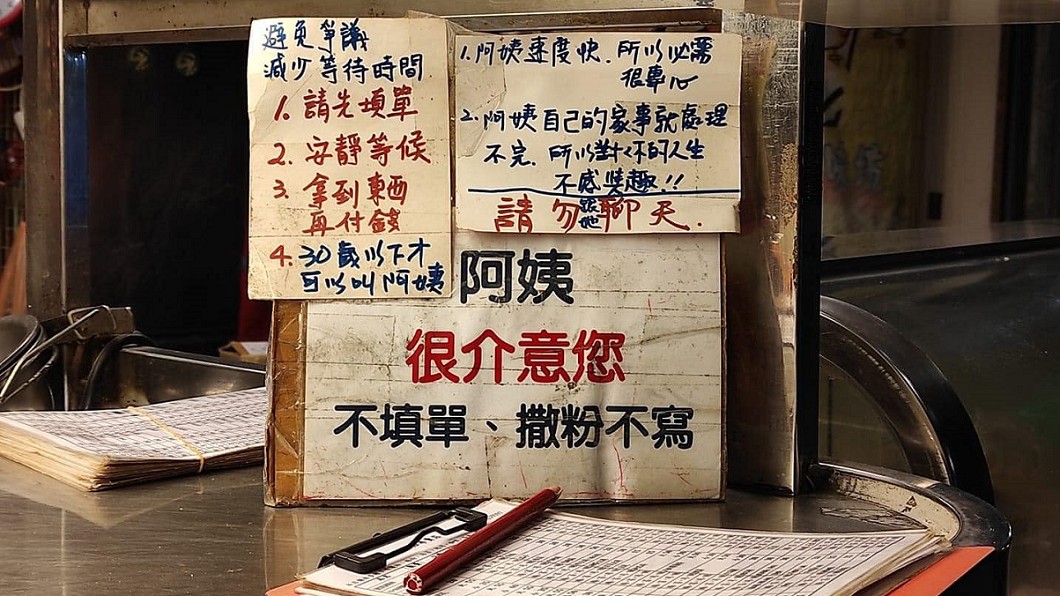 避免爭議
減少等待時間
1. 請先填單
2. 安靜等候
3. 拿到東西
再付錢
4. 30歲以下才
可以叫阿姨
1. 阿姨速度快. 所以必需
很專心
2. 阿姨自己的家事就處理
不完. 所以對你的人生
不感興趣.!!
請勿跟她聊天.
阿姨
很介意您
不填單、撒粉不寫